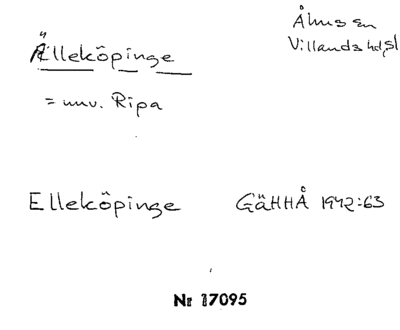 Åhus sn
Villands hd, Sl
Älleköpinge
= nuv. Ripa
Elleköpinge GäHHÅ 1942:63
Nr 17095